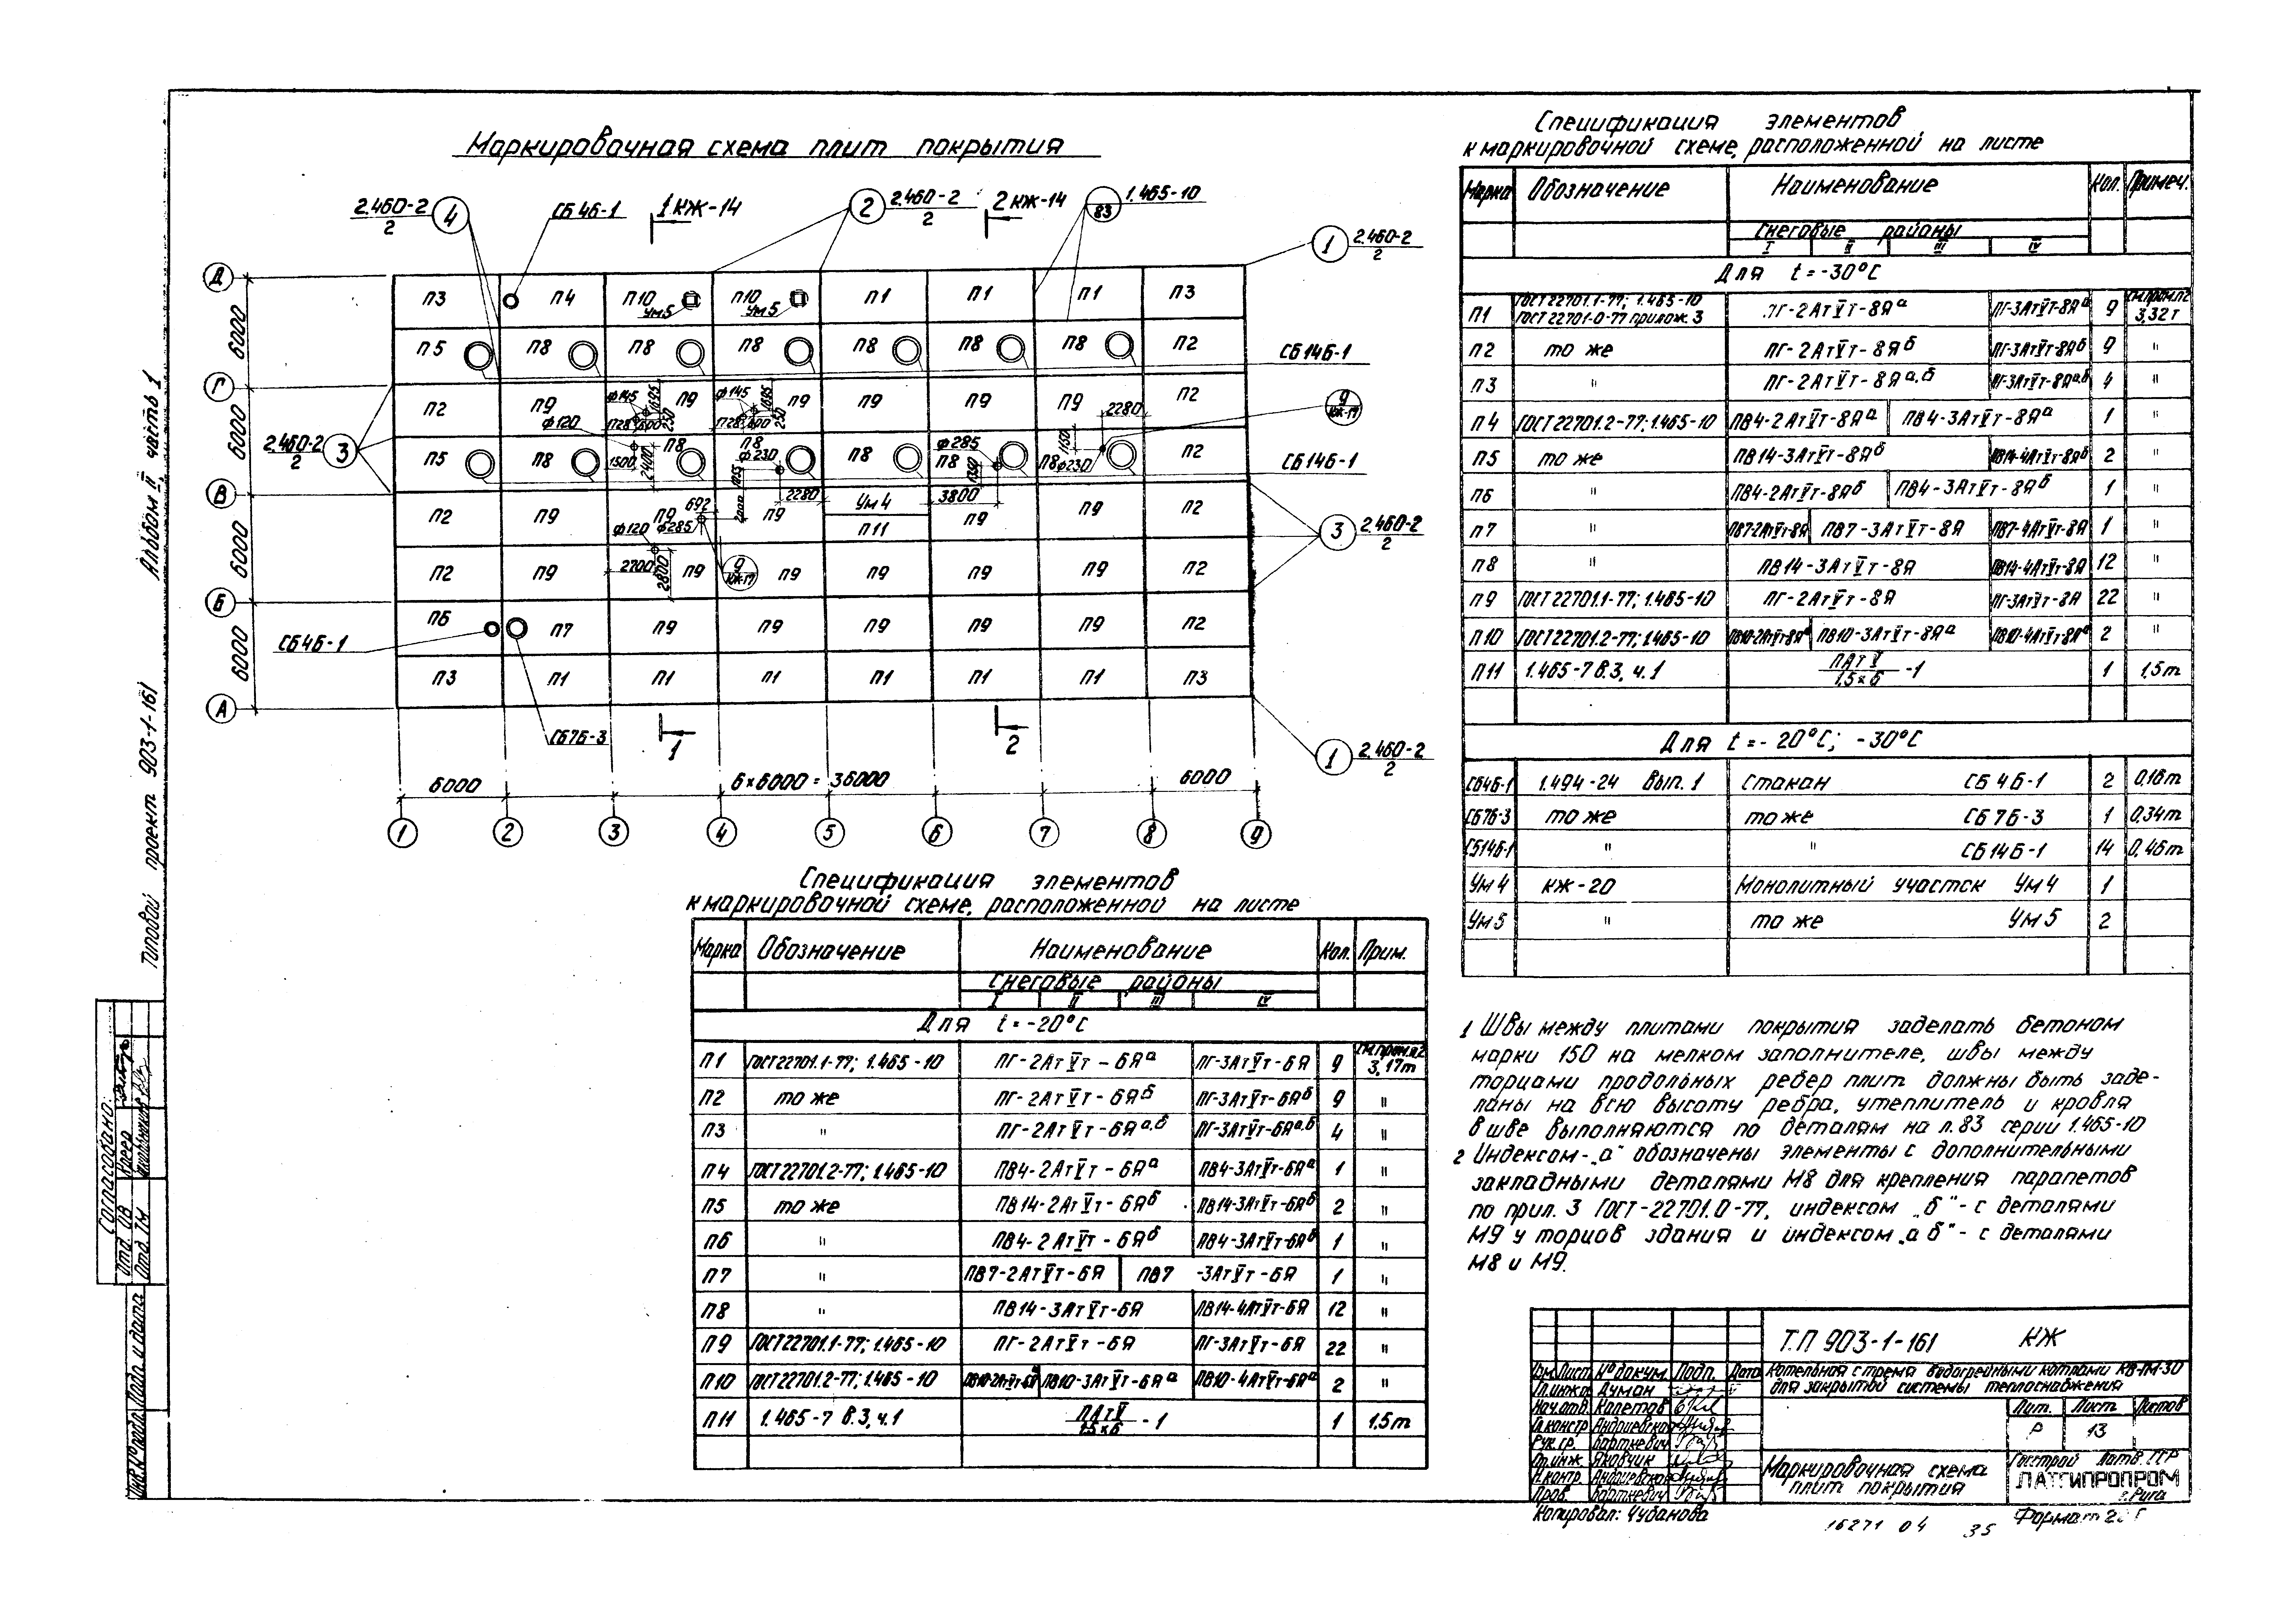 Маркировочная схема плит покрытия
2.460-2
2
4
СБ4Б-1
1 КЖ-14
2
2.460-2
2
2 КЖ-14
83
1.465-10
1
2.460-2
2
Д
П3 П4 П10 П10 П1 П1 П1 П3
Ум5 Ум5
6000
П5 П8 П8 П8 П8 П8 П8 П2
СБ14Б-1
Г
П2 П9 П9 П9 П9 П9 П9 П2
ф145 ф145
1695 250 1695 250
1728 600 1728 600
2280
9
КЖ-17
6000
ф120
2.460-2
2
3
П5 П8 П8 П8 П8 П8 П8 П2
1500 2400 ф230 ф285 ф230
СБ14Б-1
В
2280 3800
692
2000
П2 П9 П9 П9 Ум4 П9 П9 П2
П11
ф120 ф285
3
2.460-2
2
6000
П2 П9 П9 П9 П9 П9 П9 П2
2700 2800
9
КЖ-17
Б
П6 П7 П9 П9 П9 П9 П9 П2
СБ4Б-1
6000
П3 П1 П1 П1 П1 П1 П1 П3
А
СБ7Б-3
1
2
1
2.460-2
2
6000 6×6000 = 36000 6000
1 2 3 4 5 6 7 8 9
Спецификация элементов
к маркировочной схеме, расположенной на листе
Марка Обозначение Наименование Кол. Прим.
Снеговые районы
I II III IV
Для t = -20°С
П1 ГОСТ 22701.1-77; 1.465-10 ПГ-2АтVт-6Яа ПГ-3АтVт-6Я 9 см. прим. 2 3,17т
П2 то же ПГ-2АтVт-6Яб ПГ-3АтVт-6Яб 9 "
П3 " ПГ-2АтVт-6Яа,б ПГ-3АтVт-6Яа,б 4 "
П4 ГОСТ 22701.2-77; 1.465-10 ПВ4-2АтVт-6Яа ПВ4-3АтVт-6Яа 1 "
П5 то же ПВ14-2АтVт-6Яб ПВ14-3АтVт-6Яб 2 "
П6 " ПВ4-2АтVт-6Яб ПВ4-3АтVт-6Яб 1 "
П7 " ПВ7-2АтVт-6Я ПВ7-3АтVт-6Я 1 "
П8 " ПВ14-3АтVт-6Я ПВ14-4АтVт-6Я 12 "
П9 ГОСТ 22701.1-77; 1.465-10 ПГ-2АтVт-6Я ПГ-3АтVт-6Я 22 "
П10 ГОСТ 22701.2-77; 1.465-10 ПВ10-2АтVт-6Я ПВ10-3АтVт-6Яа ПВ10-4АтVт-6Яа 2 "
П11 1.465-7 в.3, ч.1 ПАтV/1.5×6 -1 1 1,5т
Спецификация элементов
к маркировочной схеме, расположенной на листе
Марка Обозначение Наименование Кол. Примеч.
Снеговые районы
I II III IV
Для t = -30°С
П1 ГОСТ 22701.1-77; 1.465-10 ГОСТ 22701-0-77 прилож. 3 ПГ-2АтVт-8Яа ПГ-3АтVт-8Яа 9 см. прим. 2 3,32т
П2 то же ПГ-2АтVт-8Яб ПГ-3АтVт-8Яб 9 "
П3 " ПГ-2АтVт-8Яа,б ПГ-3АтVт-8Яа,б 4 "
П4 ГОСТ 22701.2-77; 1.465-10 ПВ4-2АтVт-8Яа ПВ4-3АтVт-8Яа 1 "
П5 то же ПВ14-3АтVт-8Яб ПВ14-4АтVт-8Яб 2 "
П6 " ПВ4-2АтVт-8Яб ПВ4-3АтVт-8Яб 1 "
П7 " ПВ7-2АтVт-8Я ПВ7-3АтVт-8Я ПВ7-4АтVт-8Я 1 "
П8 " ПВ14-3АтVт-8Я ПВ14-4АтVт-8Я 12 "
П9 ГОСТ 22701.1-77; 1.465-10 ПГ-2АтVт-8Я ПГ-3АтVт-8Я 22 "
П10 ГОСТ 22701.2-77; 1.465-10 ПВ10-2АтVт-8Яа ПВ10-3АтVт-8Яа ПВ10-4АтVт-8Яа 2 "
П11 1.465-7 в.3, ч.1 ПАтV/1.5×6 -1 1 1,5т
Для t = -20°С; -30°С
СБ4Б-1 1.494-24 вып. 1 Стакан СБ4Б-1 2 0,16т
СБ7Б-3 то же то же СБ7Б-3 1 0,34т
СБ14Б-1 " " СБ14Б-1 14 0,46т
Ум4 КЖ-20 Монолитный участок Ум4 1
Ум5 " то же Ум5 2
1 Швы между плитами покрытия заделать бетоном
марки 150 на мелком заполнителе, швы между
торцами продольных ребер плит должны быть заде-
ланы на всю высоту ребра, утеплитель и кровля
в шве выполняются по деталям на л.83 серии 1.465-10
2 Индексом-„а" обозначены элементы с дополнительными
закладными деталями М8 для крепления парапетов
по прил. 3 ГОСТ-22701.0-77, индексом „б"- с деталями
М9 у торцов здания и индексом „а б"- с деталями
М8 и М9.
Т.П 903-1-161 КЖ
Котельная с тремя водогрейными котлами КВ-ГМ-30
для закрытой системы теплоснабжения
Изм. Лист № докум. Подп. Дата
Гл.инж. Думан
Нач.отв. Калетов
Гл.констр Андриевская
Рук.гр. Барткевич
Ст.инж Яковчик
Н.контр. Андриевская
Пров. Барткевич
Лит. Лист Листов
Р 13
Маркировочная схема
плит покрытия
Госстрой Латв. ССР
ЛАТГИПРОПРОМ
г. Рига
Копировал: Чубанова
16271 04 35
Формат 22Г
Типовой проект 903-1-161 Альбом II, часть 1
Согласовано:
Отд. ОВ
Отд. ТМ
Инв. № подл. Подп. и дата